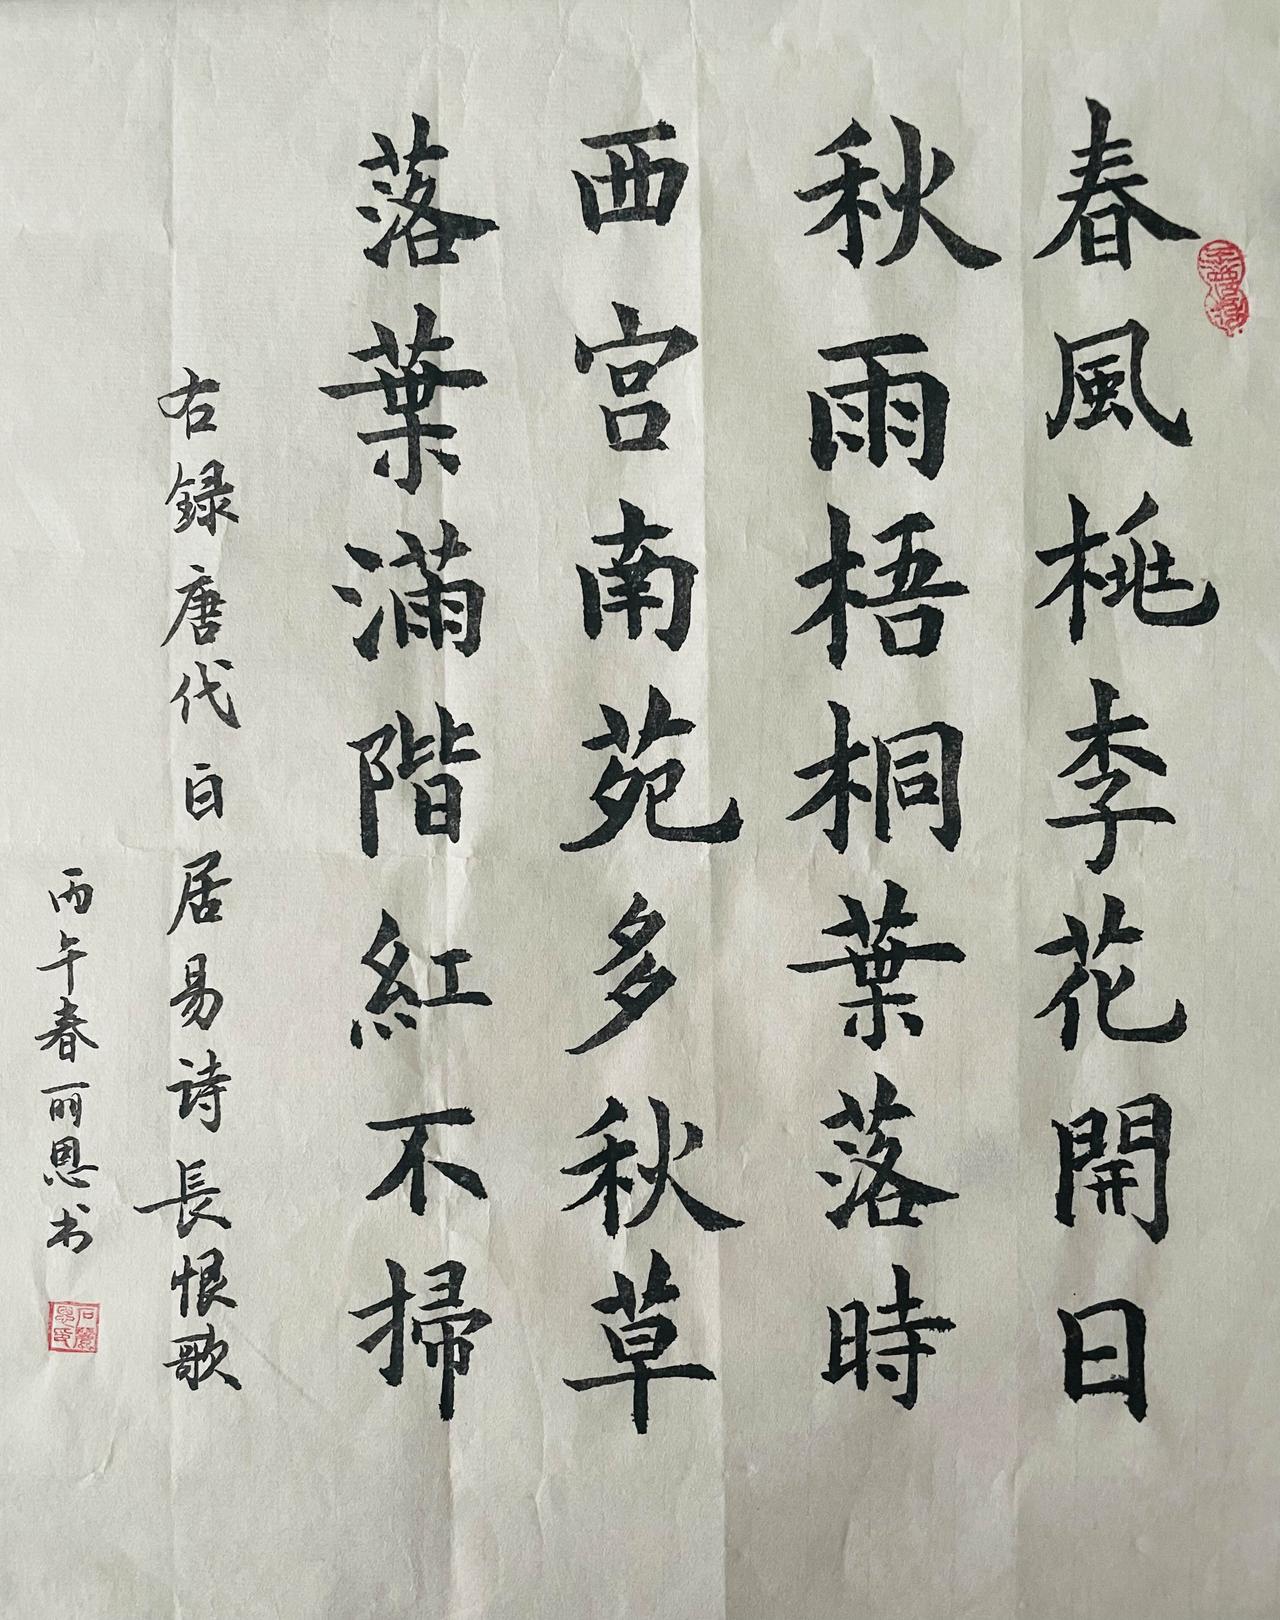 春風桃李花開日
秋雨梧桐葉落時
西宫南苑多秋草
落葉滿階紅不掃
右録唐代白居易詩長恨歌
丙午春丽恩书